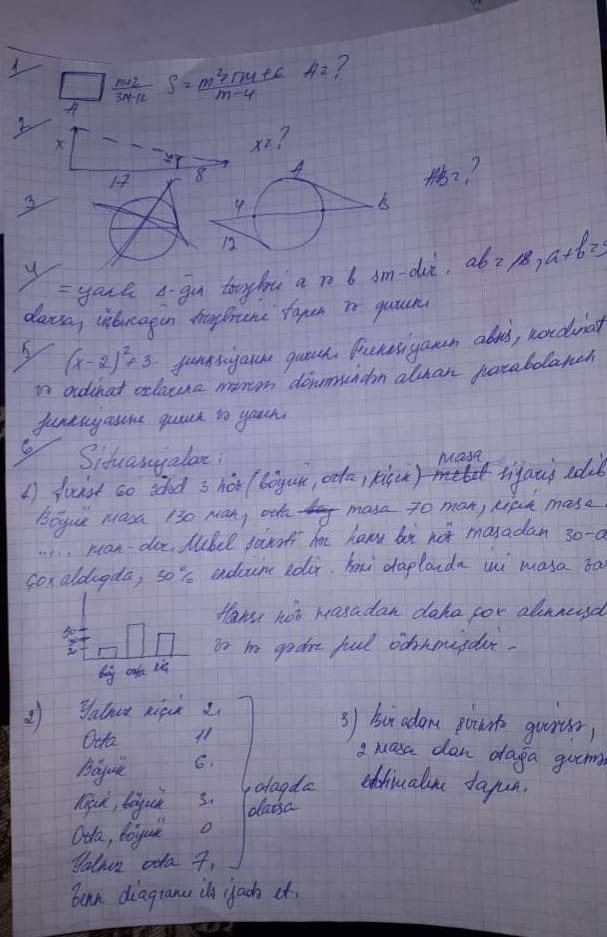 1
m+2
3m-12
S = m²+5m+6
m-4
A=?
A
2
x
17
8
x=?
3
4
12
A
B
AB=?
4
a və b sm-dir. ab=18, a+b=9
olarsa, üçbucağın tapın və qurun.
5
(x-2)²+3. funksiyasını qurun. Funksiyanın absis, koordinat
və ordinat oxlarına nəzərən dönməsindən alınan parabolanın
funksiyasını qurun və yazın.
6
Situasiyalar:
1) Şirkət 60 ədəd 3 növ (böyük, orta, kiçik) masa sifariş edib
Böyük masa 130 man, orta masa 70 man, kiçik masa
..... man-dır. Mebel şirkəti hər hansı bir növ masadan 30-d
çox aldıqda, 30% endirim edir. otaqlarda iki masa
Hansı növ masadan daha çox alınmışd
və nə qədər pul ödənmişdir.
30
20
böy orta kiç
2)
Yalnız kiçik 2.
Orta 11
Böyük 6.
Kiçik, böyük 3.
Orta, böyük 0
Yalnız orta 7.
otaqda
olarsa
Venn diaqramı ilə ifadə et.
3) Bir adam şirkətə girirsə,
2 masa olan otağa girmə
ehtimalını tapın.